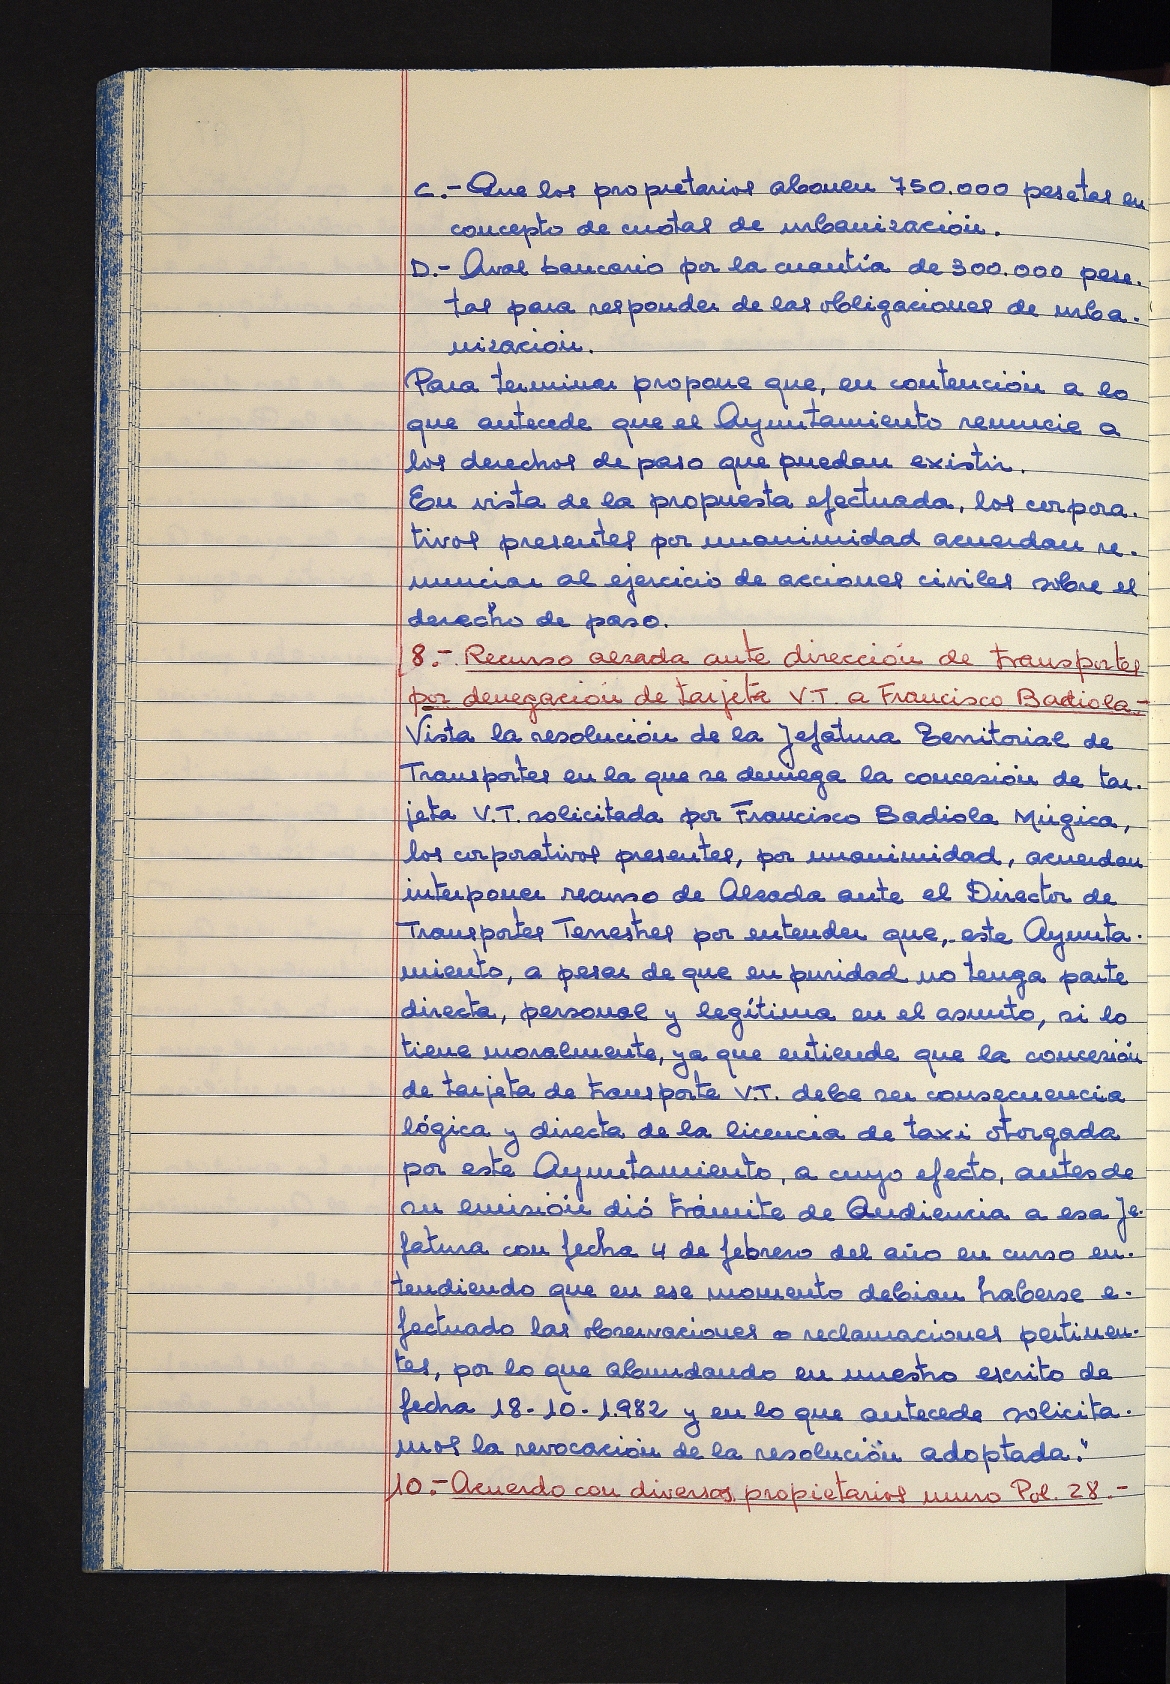 C.- Que los propietarios abonen 750.000 pesetas en
concepto de cuotas de urbanización.
D.- Aval bancario por la cuantía de 300.000 pese-
tas para responder de las obligaciones de urba-
nización.
Para terminar propone que, en contención a lo
que antecede que el Ayuntamiento renuncie a
los derechos de paso que puedan existir.
En vista de la propuesta efectuada, los corpora-
tivos presentes por unanimidad acuerdan re-
nunciar al ejercicio de acciones civiles sobre el
derecho de paso.
8.- Recurso alzada ante dirección de transportes
por denegación de tarjeta V.T. a Francisco Badiola.-
Vista la resolución de la Jefatura Territorial de
Transportes en la que se deniega la concesión de tar-
jeta V.T. solicitada por Francisco Badiola Múgica,
los corporativos presentes, por unanimidad, acuerdan
interponer recurso de Alzada ante el Director de
Transportes Terrestres por entender que, este Ayunta-
miento, a pesar de que en puridad no tenga parte
directa, personal y legítima en el asunto, si lo
tiene moralmente, ya que entiende que la concesión
de tarjeta de transporte V.T. debe ser consecuencia
lógica y directa de la licencia de taxi otorgada
por este Ayuntamiento, a cuyo efecto, antes de
su emisión dió trámite de Audiencia a esa Je-
fatura con fecha 4 de febrero del año en curso en-
tendiendo que en ese momento debian haberse e-
fectuado las observaciones o reclamaciones pertinen-
tes, por lo que abundando en nuestro escrito de
fecha 18-10-1.982 y en lo que antecede solicita-
mos la revocación de la resolución adoptada."
10.- Acuerdo con diversos propietarios muro Pol. 28.-